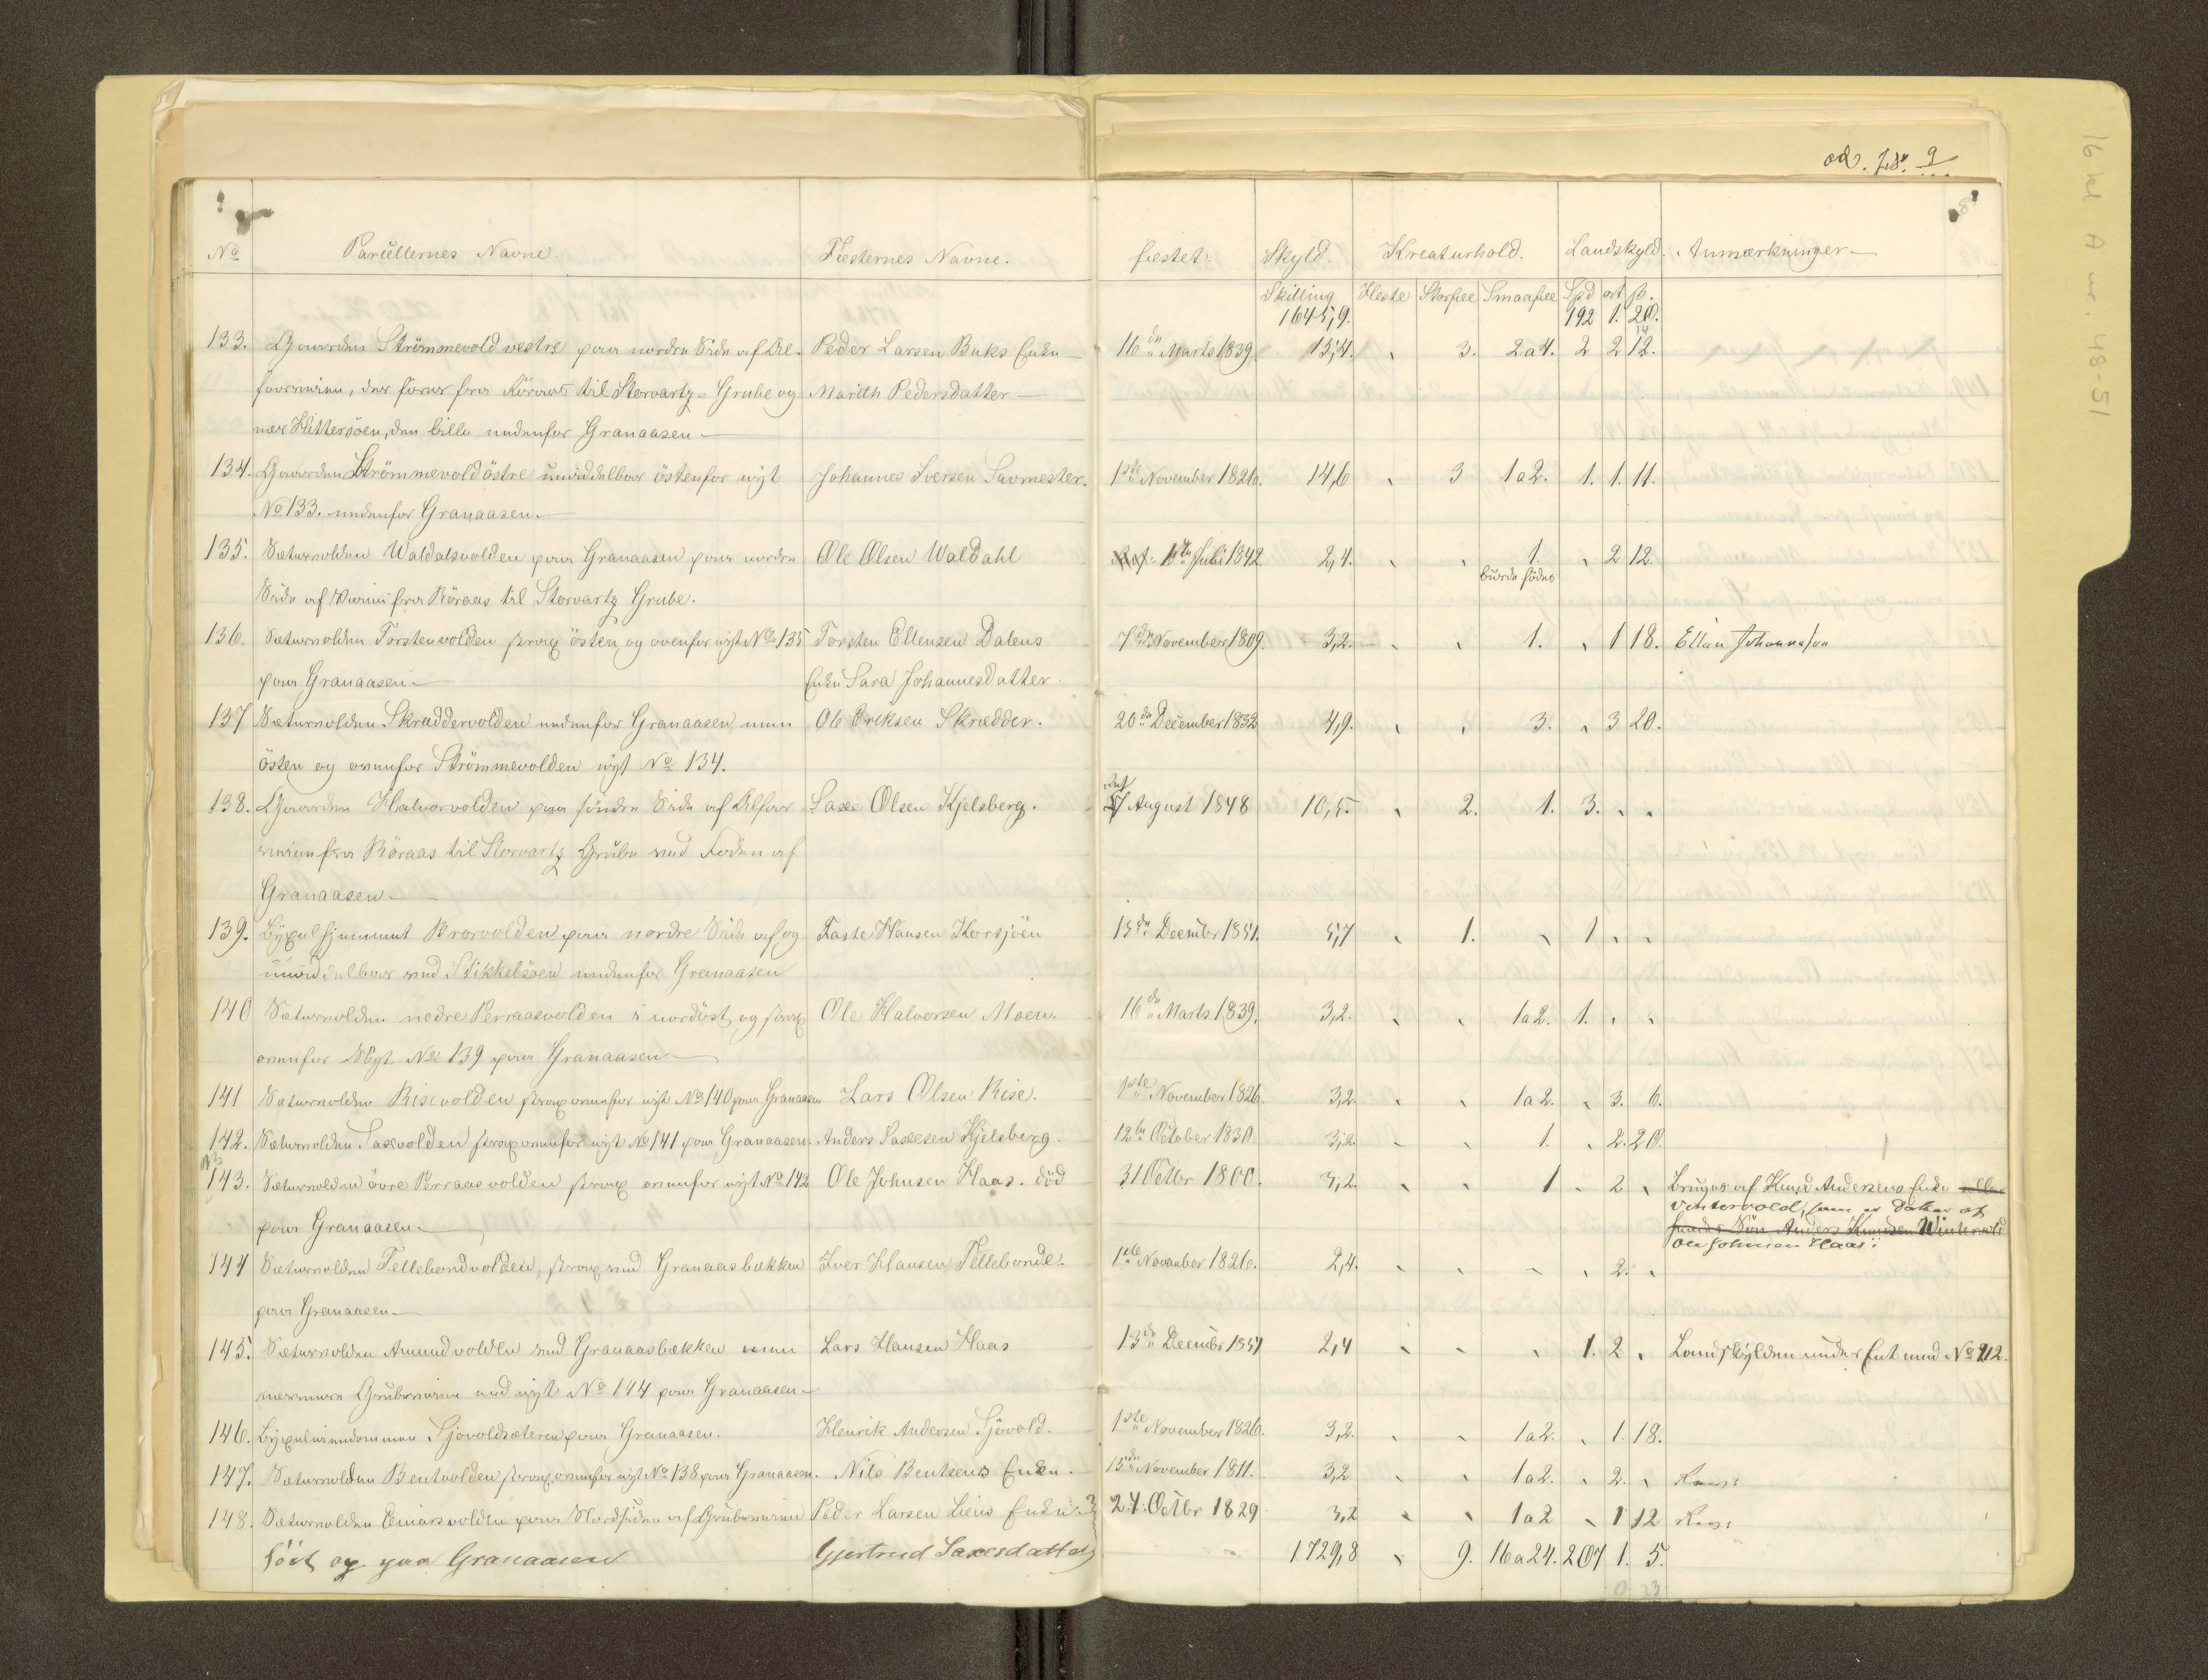 ad. No. 9
16 hd A nr. 48-51
No Parcellernes Navne. Fæsternes Navne. fæstet. Skyld. Kreaturhold. Landskyld. Anmærkninger
Skilling Heste Storfæe Smaafæe Spd ort ß.
1645,9. 192 1. 20.
133. Gaarden Strömmevold vestre paa nordre Side af Al- Peder Larsen Buks Enke 16de Marts 1839. 15,4. 3. 2a4. 2 2 12.
14
farveien, der fører fra Röraas til Storvartz-Grube og Marith Pedersdatter
nær Hittersöen, den lille nedenfor Granaasen
134. Gaarden Strömmevold östre umiddelbar östenfor nyt Johannes Iversen Savmester. 1ste November 1826. 14,6 3 1a2. 1. 1. 11.
No 133. nedenfor Granaasen
135. Sæturvolden Waldalsvolden paa Granaasen paa nordre Ole Olsen Waldahl 10de Juli 1842. 2,4. 1. 2 12.
burde födes
Side af Veien fra Röraas til Storvartz Grube.
136. Sæturvolden Torstenvolden strax östen og ovenfor nyt No 135 Torsten Ellensen Dalens 7de November 1809. 3,2. 1. 1 18. Ellan Johannesen
paa Granaasen Enke Sara Johannesdatter
137 Sæturvolden Skraddervolden nedenfor Granaasen men Ole Eriksen Skrædder. 20de December 1832 4,9. 3. 3 20.
östen og ovenfor Strömmevolden nyt No 134.
138. Gaarden Halvorvolden paa söndre Side af Alfar Saxe Olsen Kjelsberg. 7 August 1848 10,5. 2. 1. 3.
veien fra Röraas til Storvartz Grube ved Foden af
Granaasen
139. Bÿxelhjemmet Brorvolden paa nordre Side af og Faste Hansen Korsjöen 15de Decembr 1851. 5,7 1. 1
umiddelbar ved Stikkelsöen nedenfor Granaasen
140 Sæturvolden nedre Perraasvolden i nordöst og strax Ole Halvorsen Moen. 16de Marts 1839. 3,2. 1a2. 1.
ovenfor Nyt No 139 paa Granaasen
141 Sæturvolden Risevolden strax ovenfor nyt No 140 paa Granaasen Lars Olsen Rise. 1ste November 1826. 3,2. 1a2. 3. 6.
142. Sæturvolden Saxevolden strax ovenfor nyt No 141 paa Granaasen. Anders Saxesen Kjelsberg. 12te October 1830. 3,2. 1. 2. 20.
143. Sæturvolden övre Perraasvolden strax ovenfor nyt No 142 Ole Johnsen Haas. död 31 Octbr 1800. 3,2. 1 2 Bruges af Knud Andersens Enke
Vintervold, som er Datter af
paa Granaasen. hendes Sön Anders Knudsen Wintervold
Ole Johnsen Haas.
144 Sæturvolden Tellebondvolden, strax ved Granaasbækken Iver Hansen Tellebonde. 1ste November 1826. 2,4. 2.
paa Granaasen
145. Sæturvolden Amundvolden ved Granaasbækken men Lars Hansen Haas 13de Decembr 1851 2,4 1. 2 Landskÿlden under Eet med No 212.
nærmere Grubeveien end nyt No 144 paa Granaasen
146. Bÿxeleiendommen Sjövoldsæteren paa Granaasen. Henrik Andersen Sjövold. 1ste November 1826. 3,2. 1a2. 1. 18.
147. Sæturvolden Bentvolden strax ovenfor nyt No 138 paa Granaasen. Nils Bentsens Enke. 15de November 1811. 3,2 1a2. 2.
148. Sæturvolden Einarsvolden paa Nordsiden af Grubeveien Peder Larsen Liens Enke. 24. Octbr 1829 3,2 1a2 1 12
höit op paa Granaasen Gjertrud Saxesdatter 1729,8 9. 16a24. 207 1. 5.
0 23